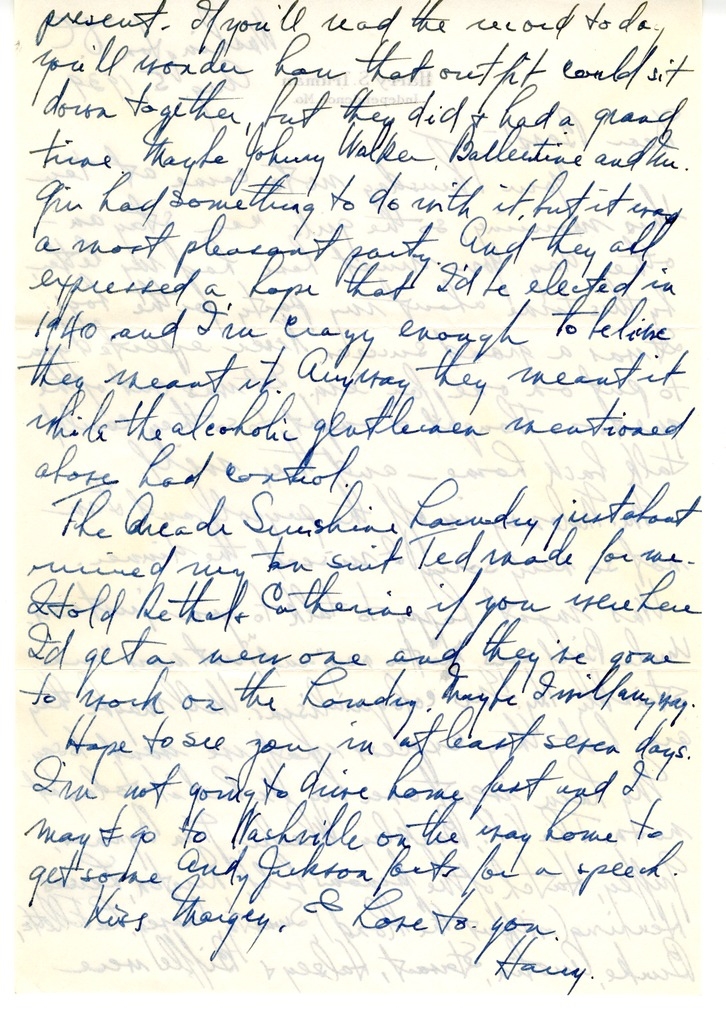 present. If you'll read the record today
you'll wonder how that outfit could sit
down together, but they did & had a grand
time. Maybe Johnny Walker, Ballentine and Mr.
Gin had something to do with it, but it was
a most pleasant party. And they all
expressed a hope that I'd be elected in
1940 and I'm crazy enough to belive
they meant it. Anyway they meant it
while the alcoholic gentlemen mentioned
above had control.
The Arcade Sunshine Laundry just about
ruined my tan suit Ted made for me.
I told Bethel & Catherine if you were here
I'd get a new one and they've gone
to work on the Laundry. Maybe I will anyway.
Hope to see you in at least seven days.
I'm not going to drive home fast and I
may go to Nashville on the way home to
get some Andy Jackson facts for a speech.
Kiss Margey, & love to you.
Harry.